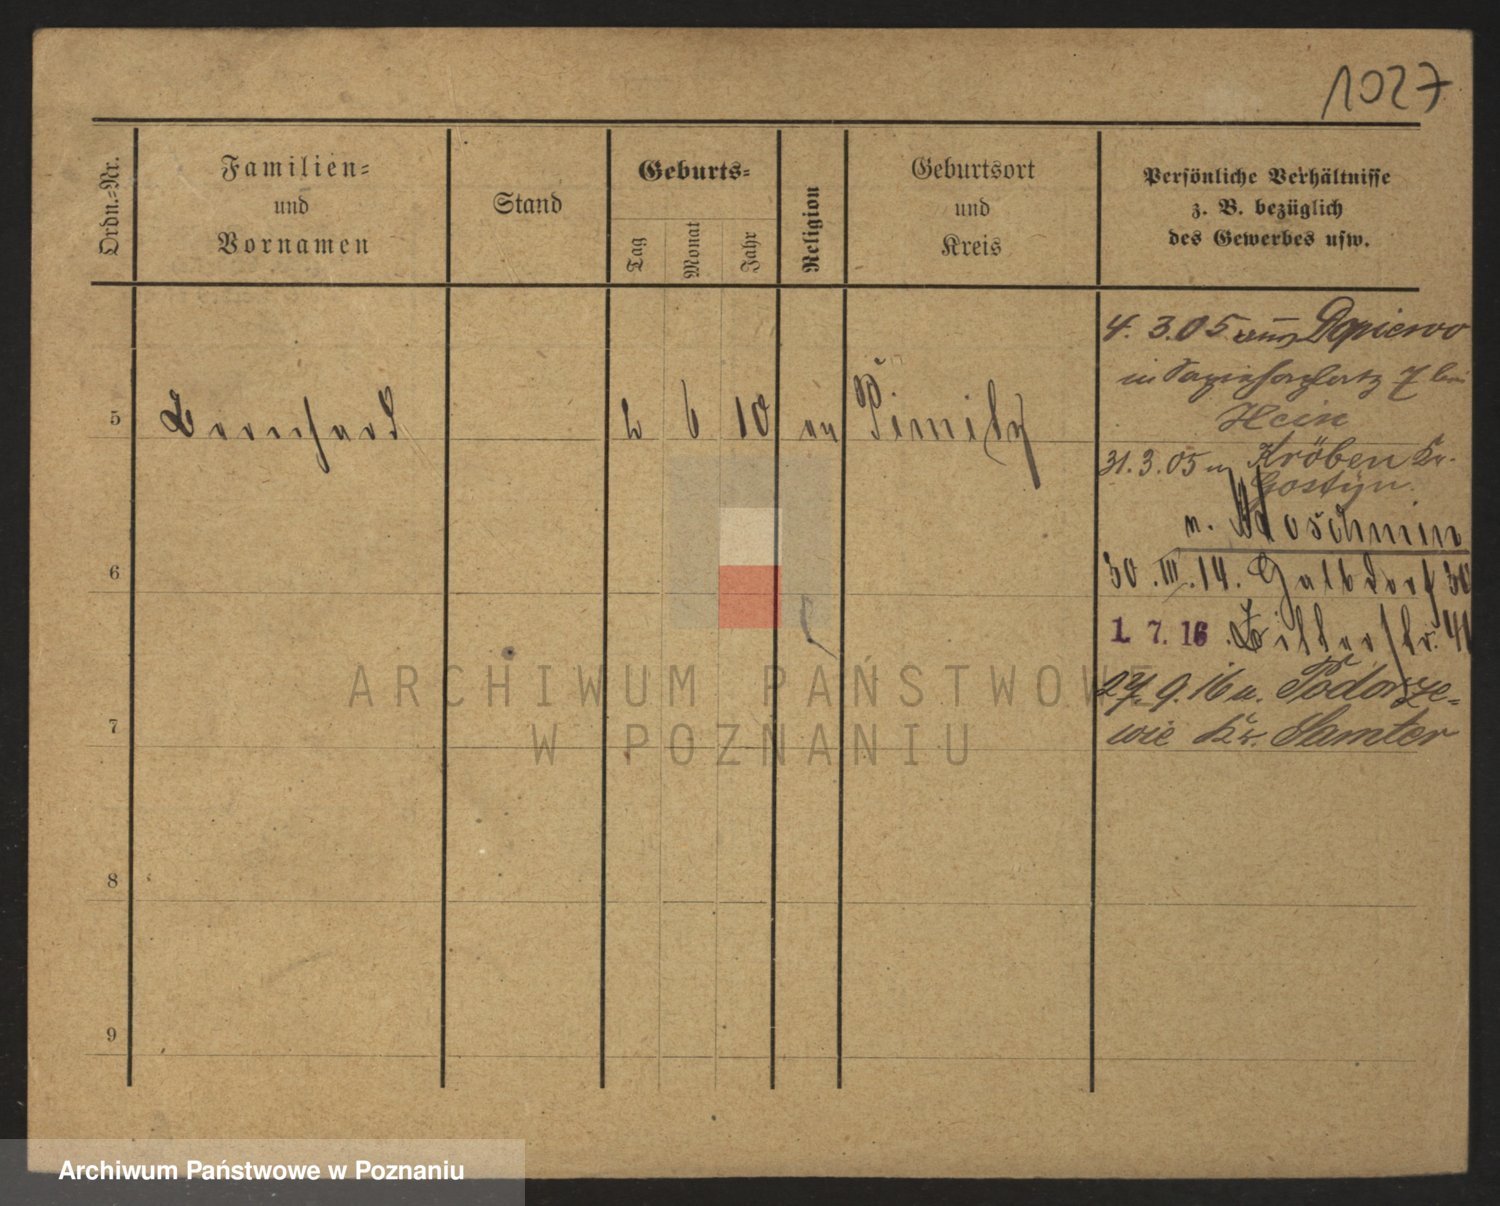 1027
Ordn.-Nr.
Familien-
und
Vornamen
Stand
Geburts-
Tag
Monat
Jahr
Religion
Geburtsort
und
Kreis
Persönliche Verhältnisse
z. B. bezüglich
des Gewerbes usw.
4. 3.05 aus Dopiewo
in 7 bei
Hein
5 Bernhard 2 6 10 ev
31.3.05 n Kröben Kr.
Gostyn.
n. Moschmin
6
30.III.14. 30
1. 7. 16 41
27.9.16 n. Podorze-
7
wie Kr. Samter
8
9
ARCHIWUM PAŃSTWOWE
W POZNANIU
Archiwum Państwowe w Poznaniu